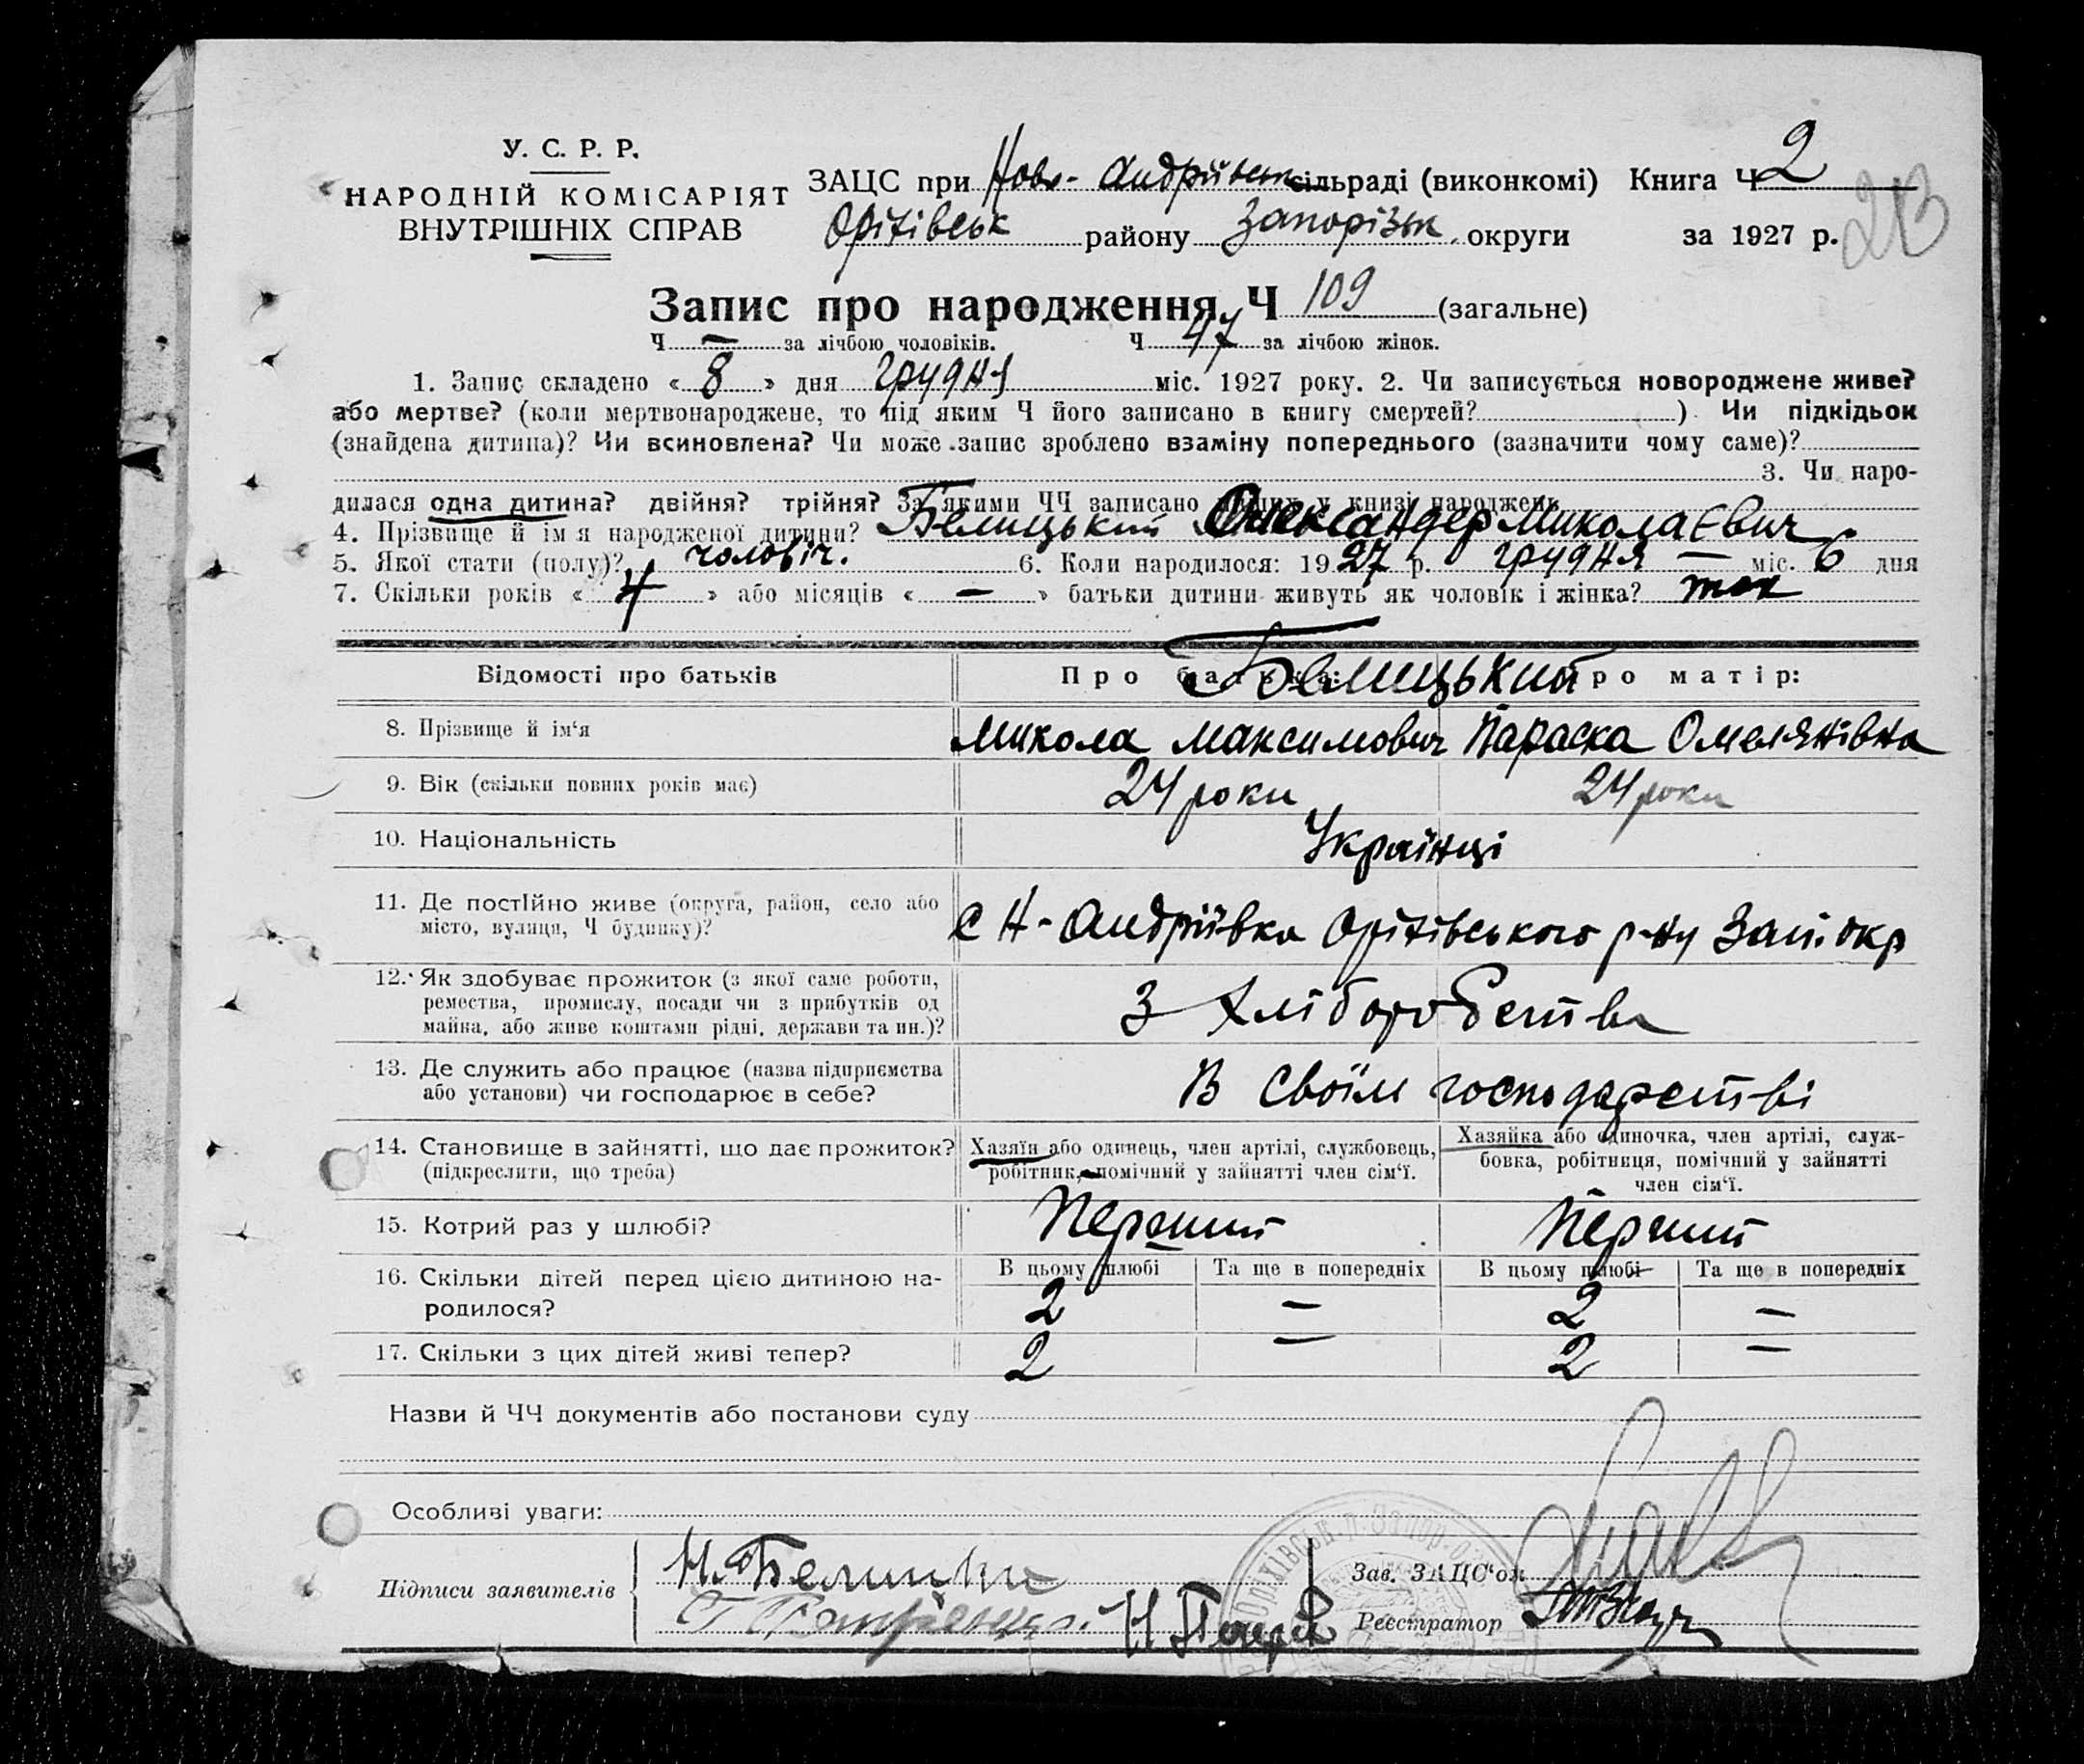 У. С. Р. Р.
НАРОДНІЙ КОМІСАРІЯТ
ВНУТРІШНІХ СПРАВ
ЗАЦС при Ново-Андріївськ сільраді (виконкомі) Книга Ч 2
Оріхівськ району Запорізьк. округи за 1927 р.
23
Запис про народження Ч 109 (загальне)
Ч — за лічбою чоловіків. Ч 47 за лічбою жінок.
1. Запис складено « 8 » дня грудня міс. 1927 року. 2. Чи записується новороджене живе?
або мертве? (коли мертвонароджене, то під яким Ч його записано в книгу смертей? ) Чи підкідьок
(знайдена дитина)? Чи всиновлена? Чи може запис зроблено взаміну попереднього (зазначити чому саме)?
3. Чи наро-
дилася одна дитина? двійня? трійня? За якими ЧЧ записано инших у книзі народжень
4. Прізвище й ім'я народженої дитини? Белицький Олександер Миколаєвич
5. Якої стати (полу)? чоловіч. 6. Коли народилося: 1927 р. грудня — міс. 6 дня
7. Скільки років « 4 » або місяців « — » батьки дитини живуть як чоловік і жінка? так
Відомості про батьків Про батька: Про матір:
Белицький
8. Прізвище й ім'я Микола Максимович Параска Омелянівна
9. Вік (скільки повних років має) 24 роки 24 роки
10. Національність Українці
11. Де постійно живе (округа, район, село або
місто, вулиця, Ч будинку)? с Н-Андріївка Оріхівського р-ну Зап. окр
12. Як здобуває прожиток (з якої саме роботи,
ремества, промислу, посади чи з прибутків од
майна, або живе коштами рідні, держави та ин.)? З хліборобства
13. Де служить або працює (назва підприємства
або установи) чи господарює в себе? В своїм господарстві
14. Становище в зайнятті, що дає прожиток?
(підкреслити, що треба)
Хазяїн або одинець, член артілі, службовець,
робітник, помічний у зайнятті член сім'ї.
Хазяйка або одиночка, член артілі, служ-
бовка, робітниця, помічний у зайнятті
член сім'ї.
15. Котрий раз у шлюбі? Перший Перший
16. Скільки дітей перед цією дитиною на-
родилося?
В цьому шлюбі Та ще в попередніх В цьому шлюбі Та ще в попередніх
2 — 2 —
17. Скільки з цих дітей живі тепер? 2 — 2 —
Назви й ЧЧ документів або постанови суду
Особливі уваги:
Підписи заявителів
Зав. ЗАЦС'ом
Реєстратор